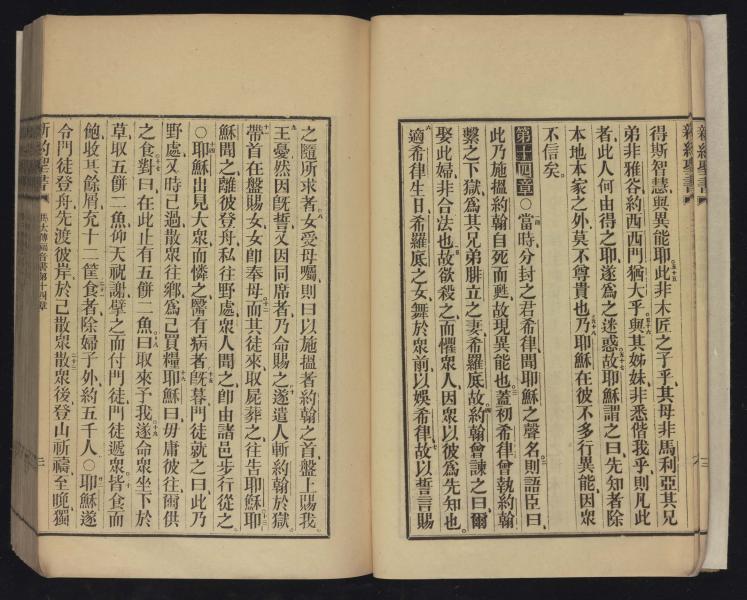 新約聖書
得斯智慧與異能耶此非木匠之子乎其母非馬利亞其兄
弟非雅谷約西西門猶大乎與其姊妹非悉偕我乎則凡此
者此人何由得之耶遂為之迷惑故耶穌謂之曰先知者除
本地本家之外莫不尊貴也乃耶穌在彼不多行異能因眾
不信矣
第十四章○當時分封之君希律聞耶穌之聲名則語臣曰
此乃施搵約翰自死而甦故現異能也蓋初希律曾執約翰
繫之下獄為其兄弟腓立之妻希羅底故約翰曾諫之曰爾
娶此婦非合法也故欲殺之而懼眾人因眾以彼為先知也
適希律生日希羅底之女舞於眾前以娛希律故以誓言賜
之隨所求者女受母囑則曰以施搵者約翰之首盤上賜我
王憂然因旣誓又因同席者乃命賜之遂遣人斬約翰於獄
帶首在盤賜女女即奉母而其徒來取屍葬之往告耶穌耶
穌聞之離彼登舟私往野處眾人聞之即由諸邑步行從之
○耶穌出見大眾而憐之醫有病者旣暮門徒就之曰此乃
野處又時已過散眾往鄉為己買糧耶穌曰毋庸彼往爾供
之食對曰在此止有五餅二魚曰取來予我遂命眾坐下於
草取五餅二魚仰天祝謝擘之而付門徒門徒遞眾皆食而
飽收其餘屑充十二筐食者除婦子外約五千人○耶穌遂
令門徒登舟先渡彼岸於己散眾散眾後登山祈禱至晚獨
新約聖書 馬太傳福音書第十四章